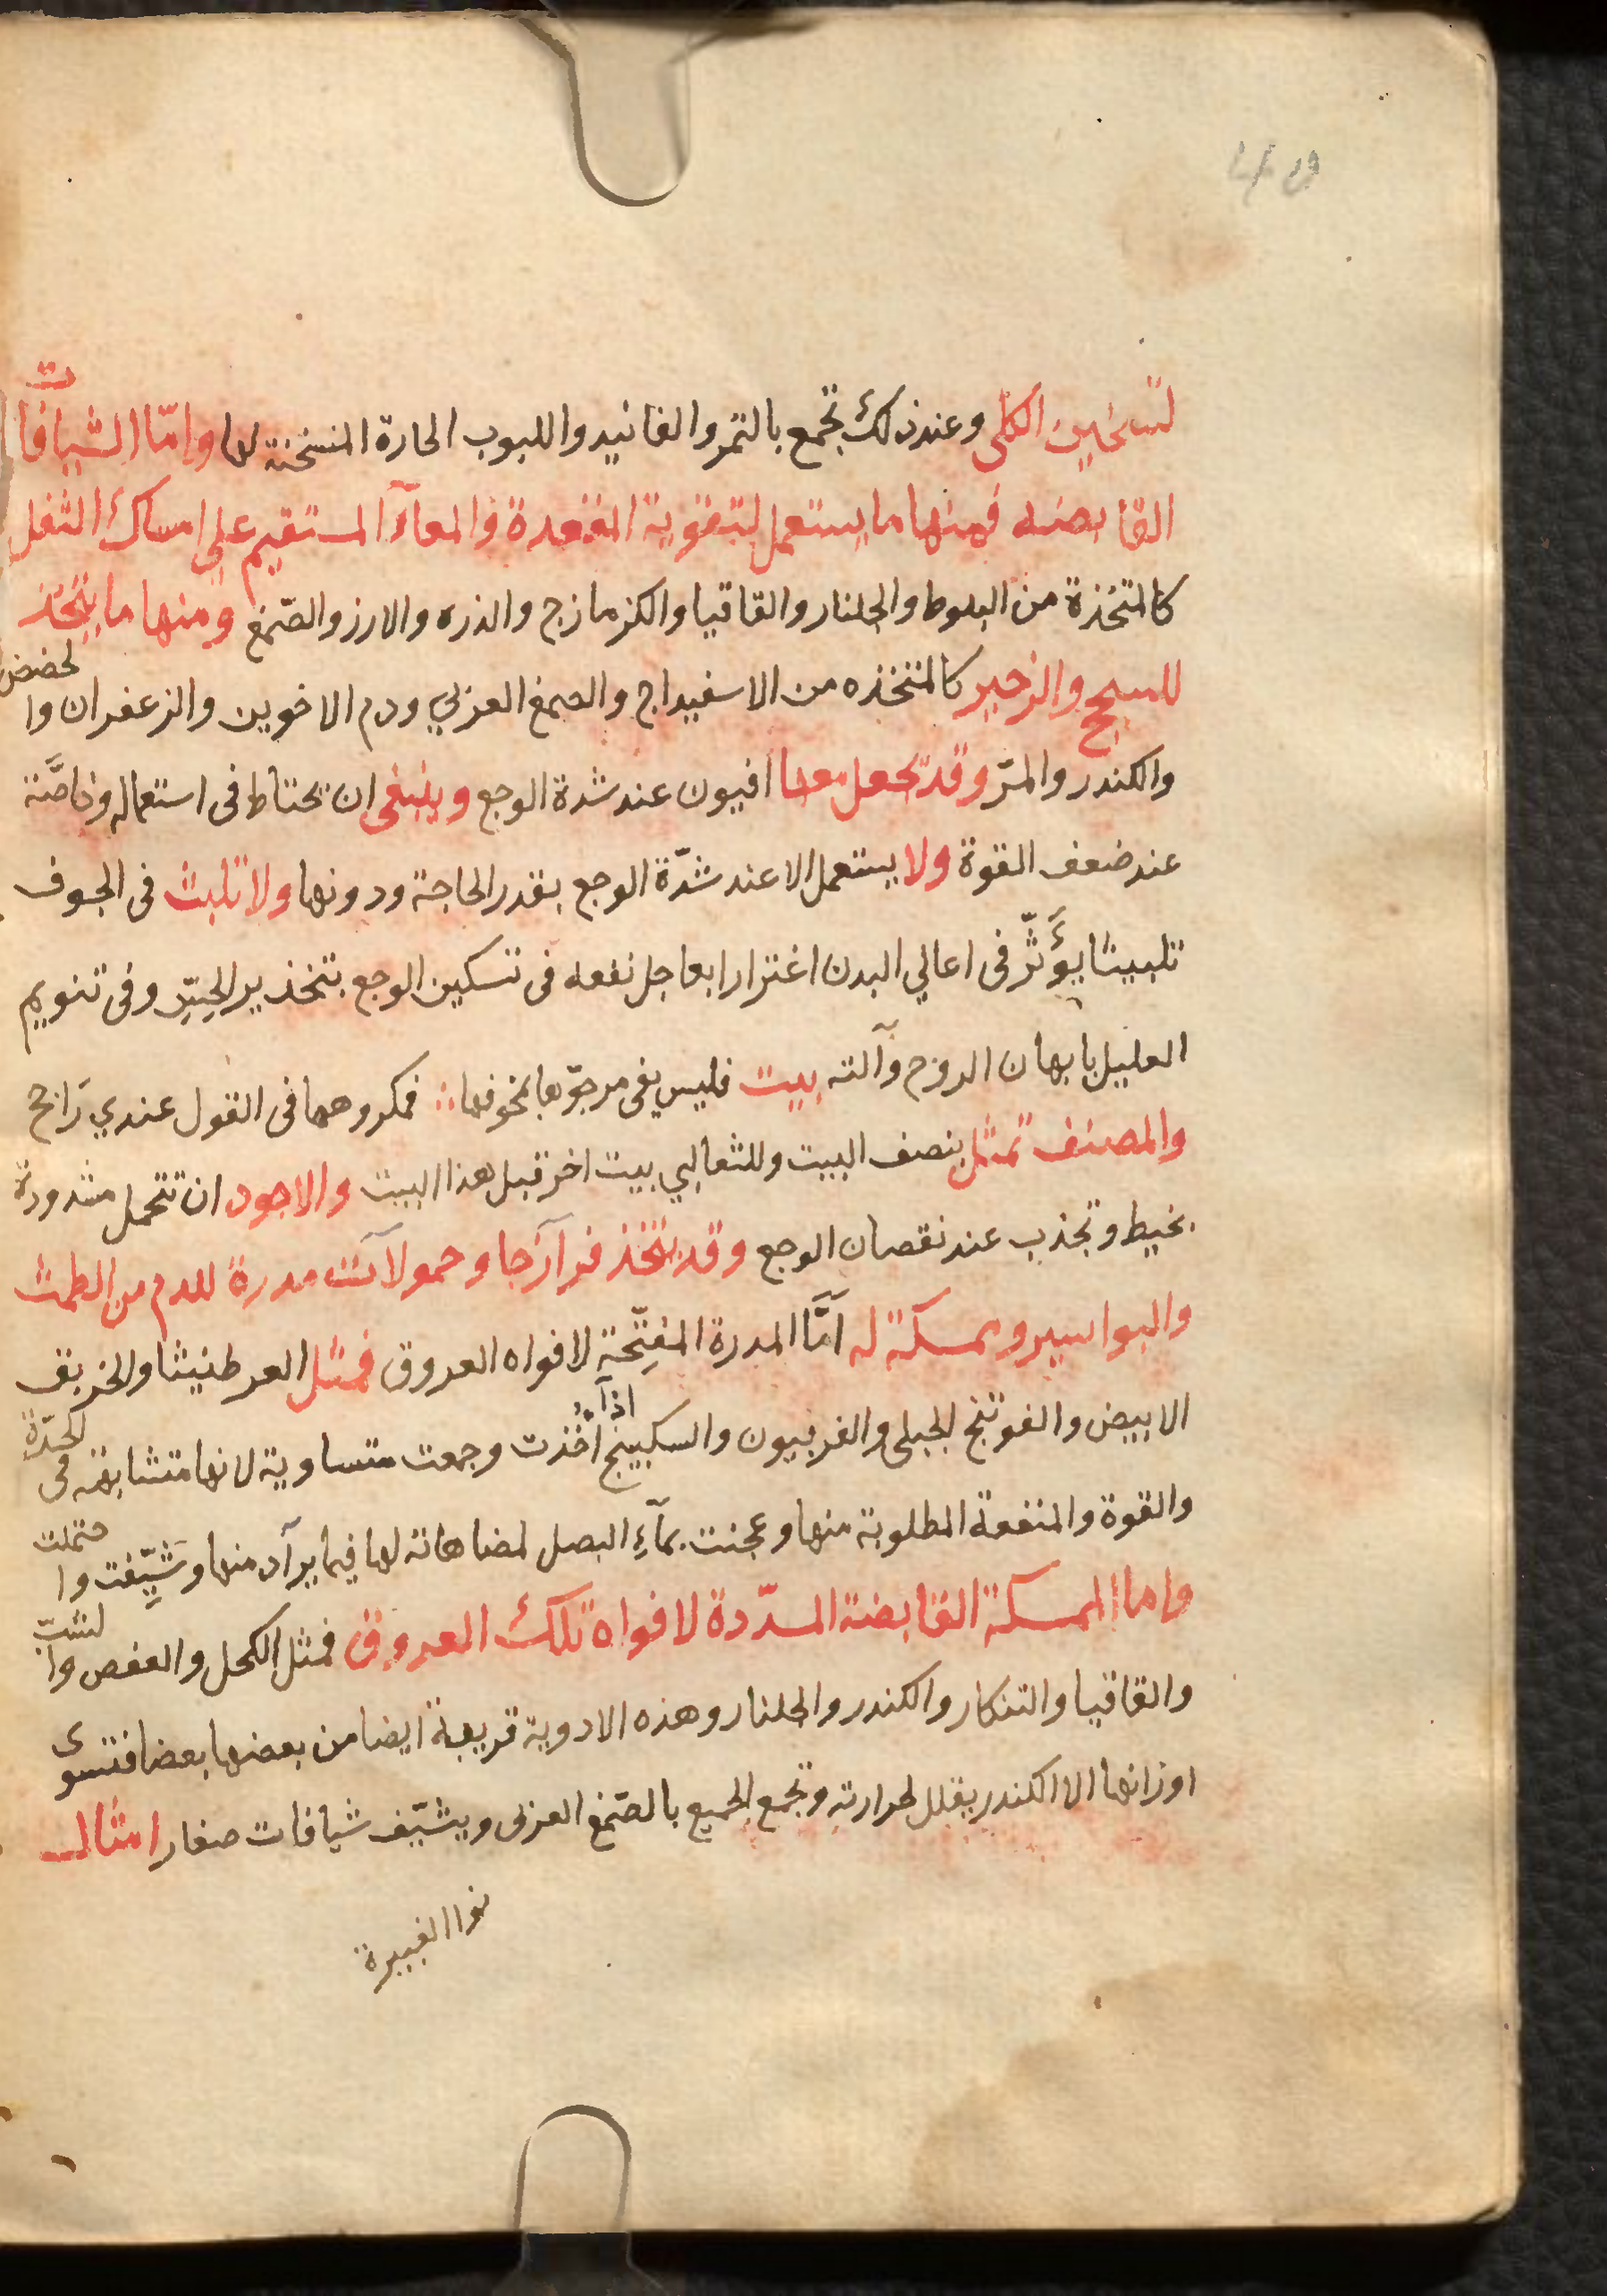 لتسخين الكلى وعند ذلك تجمع بالتمر والفانيد واللبوب الحارة المسخنة لها وامّا الشيافات
القابضه فمنها ما يستعمل لتقوية المقعدة والمعآء المستقيم على امساك الثفل
كالمتخذة من البلوط والجلنار والقاقيا والكزمازج والذره والارز والصّمغ ومنها ما يتخذ
للسحج والزحير كالمتخذه من الاسفيداج والصمغ العربي ودم الاخوين والزعفران والحضض
والكندر والمرّ وقد يجعل معها افيون عند شدة الوجع وينبغى ان يحتاط فى استعماله وخاصَّة
عند ضعف القوة ولا يستعمل الا عند شدّة الوجع بقدر الحاجة ودونها ولا تلبث فى الجوف
تلبيثا يؤَثّر فى اعالي البدن اغترارا بعاجل نفعه فى تسكين الوجع بتخذير الحِسِّ وفى تنويم
العليل بايهان الروح وآلته بيت فليس يفى مرجوّها بمخوفها ∴ فمكروهها فى القول عندي رَاجح
والمصنف تمثل بنصف البيت وللثعالبي بيت اخر قبل هذا البيت والاجود ان تتحمل مشدودة
بخيط وتجذب عند نقصان الوجع وقد يتخذ فرآزجا وحمولآت مدرة للدم من الطمث
والبواسير وممسكة له امَّا المدرة المفتِّحة لافواه العروق فمثل العرطنيثا والخربق
الابيض والفوتنج الجبلى والفربيون والسكبينج اذآ اُخُذت وجمعت متساوية لانها متشابهة فى الحدّة
والقوة والمنفعة المطلوبة منها وعجنت بمآءِ البصل لمضاهاته لها فيما يرآد منها وشَيِّفت واحتملت
واما الممسكة القابضة المسدّدة لافواه تلك العروق فمثل الكحل والعفص والشبّ
والقاقيا والتنكار والكندر والجلنار وهذه الادوية قريبة ايضا من بعضها بعضا فتسوى
اوزانها الا الكندر يقلل لحرارته وتجمع الجميع بالصّمغ العربى ويشيّف شيافات صغار امثال
نوا الغبيرة